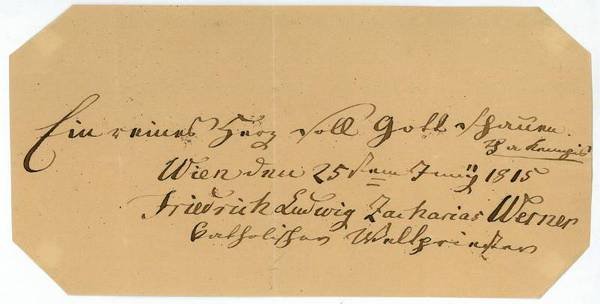 Ein reines Herz soll Gott schauen.
Th a Kempis
Wien den 25 Juny 1815
Friedrich Ludwig Zacharias Werner
Catholischer Weltpriester